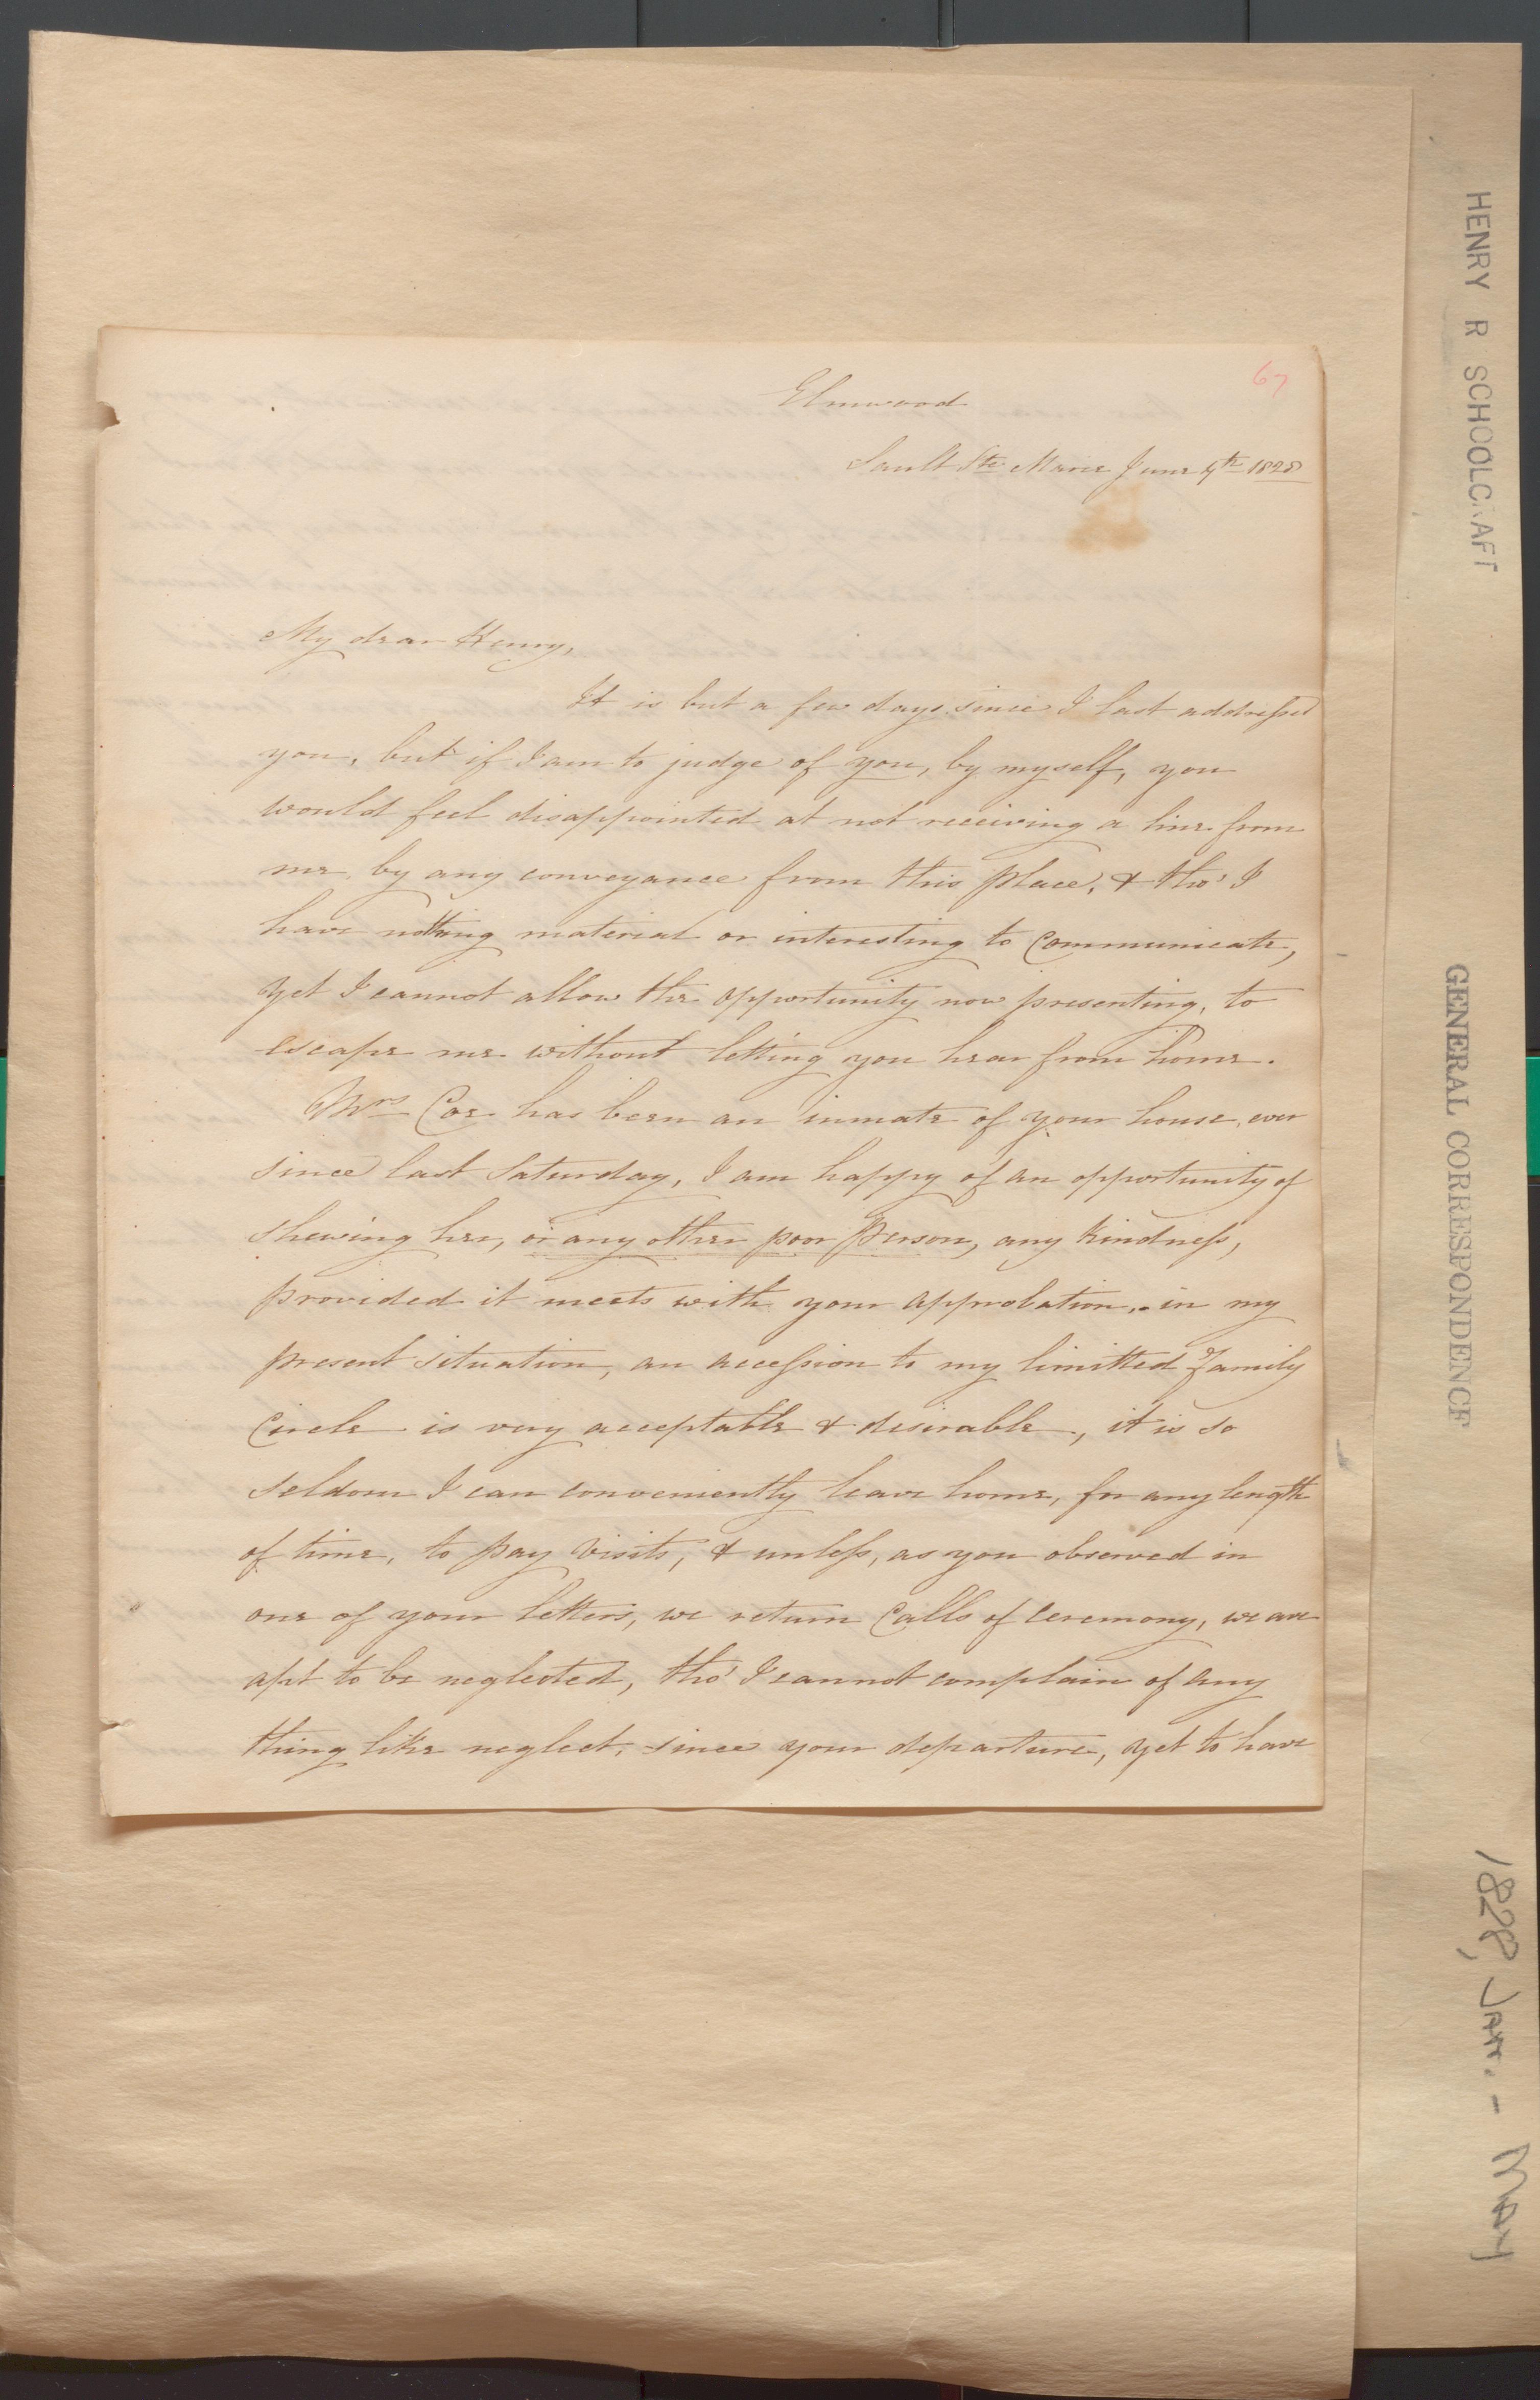 67
Elmwood
Sault Ste Marie June 4th 1828
My dear Henry,
It is but a few days since I last addressed
you, but if I am to judge of you, by myself, you
would feel disappointed at not receiving a line from
me by any conveyance from this place, & tho' I
have nothing material or interesting to communicate,
yet I cannot allow the opportunity now presenting, to
escape me without letting you hear from home.
Mrs Coe has been an inmate of your house, ever
since last Saturday, I am happy of an opportunity of
shewing her, or any other poor person, any kindness,
provided it meets with your approbation, - in my
present situation, an accession to my limitted family
Circle is very acceptable & desirable, it is so
seldom I can conveniently leave home, for any length
of time, to pay visits, & unless, as you observed in
one of your letters, we return Calls of Ceremony, we are
apt to be neglected, tho' I cannot complain of any
thing like neglect, since your departure, yet to have
HENRY R SCHOOLCRAFT
GENERAL CORRESPONDENCE
1828, JAN. - MAY